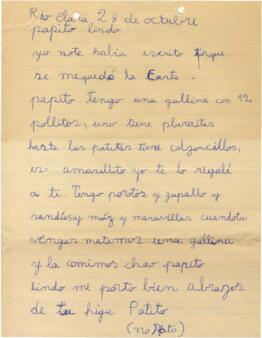 Río Clara 28 de octubre
papito lindo:
yo note había escrito porque
se mequedó la Carta
papito tengo una gallina con 12
pollitos, uno tiene plumitas
hasta las patitas tiene calzoncillos,
es amarillito yo te lo regalé
a ti. Tengo porotos y zapallo y
sandías y maíz y maravillas cuandotu
vengas matamos una gallina
y la comimos chao papito
lindo me porto bien abrazos
de tu higa Patito
(no Pato)